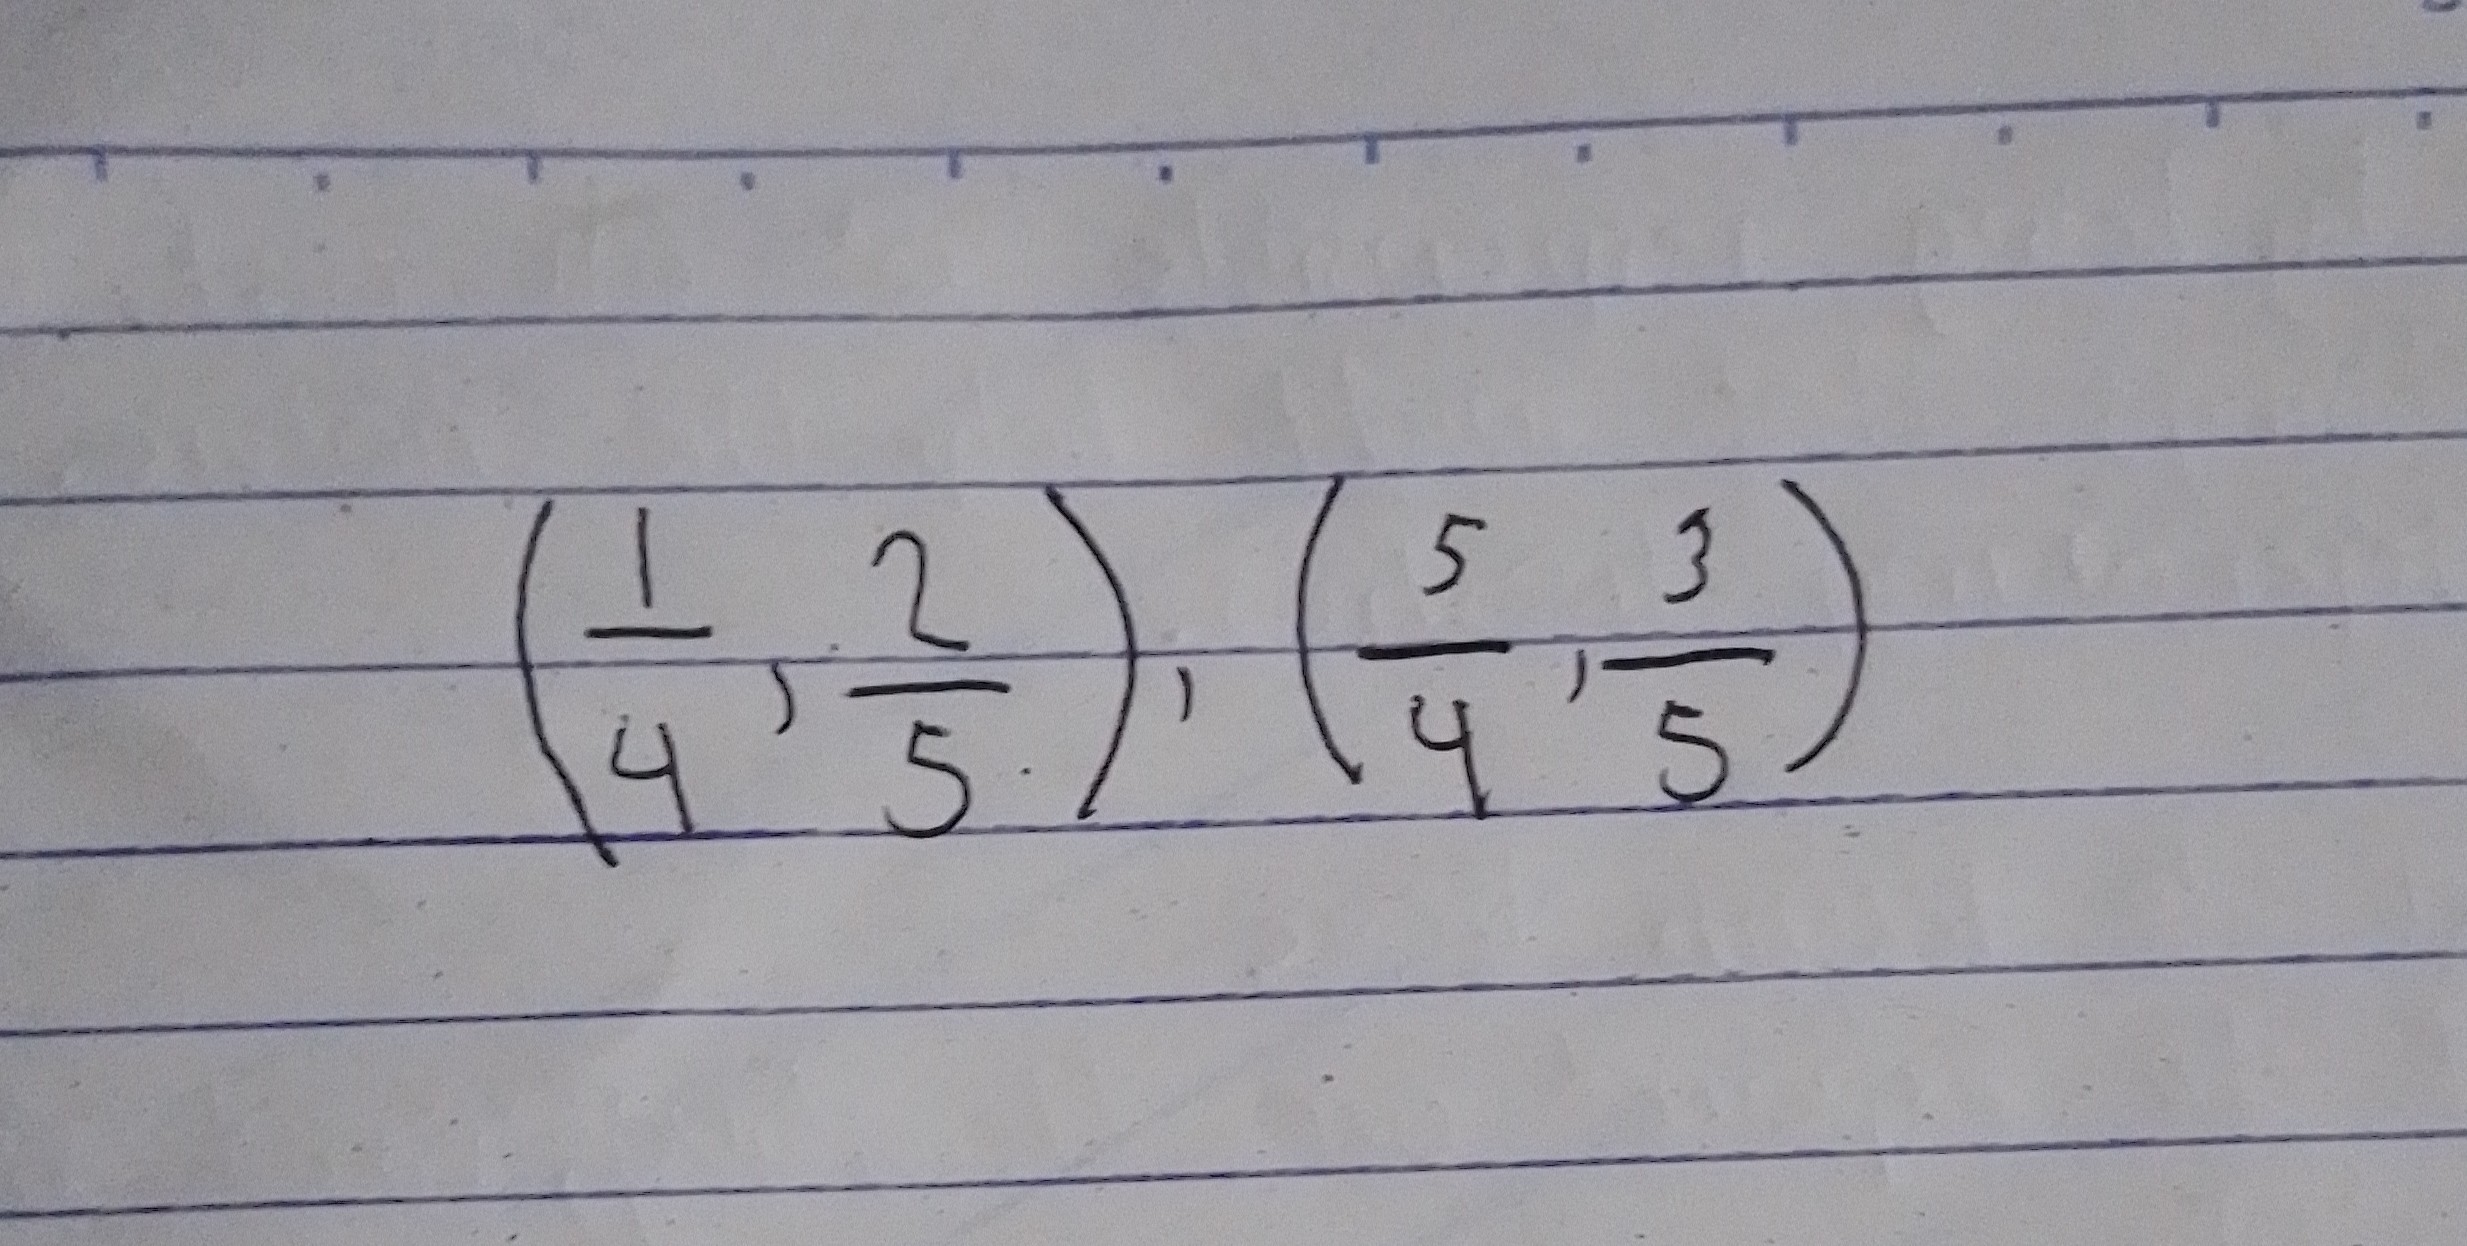 (1/4, 2/5), (5/4, 3/5)